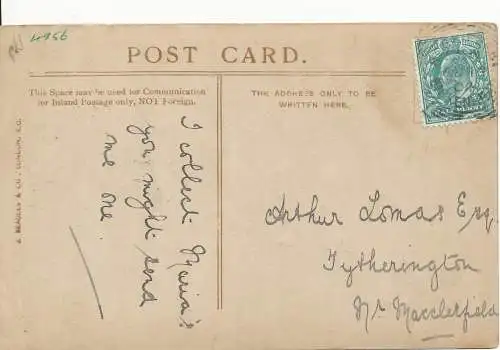 4956
POST CARD.
This Space may be used for Communication
for Inland Postage only, NOT Foreign.
THE ADDRESS ONLY TO BE
WRITTEN HERE.
I collect Maria's
you might send
me one.
Arthur Lomas Esq.
Tytherington
Nr Macclesfield
& CO., LONDON, E.C.